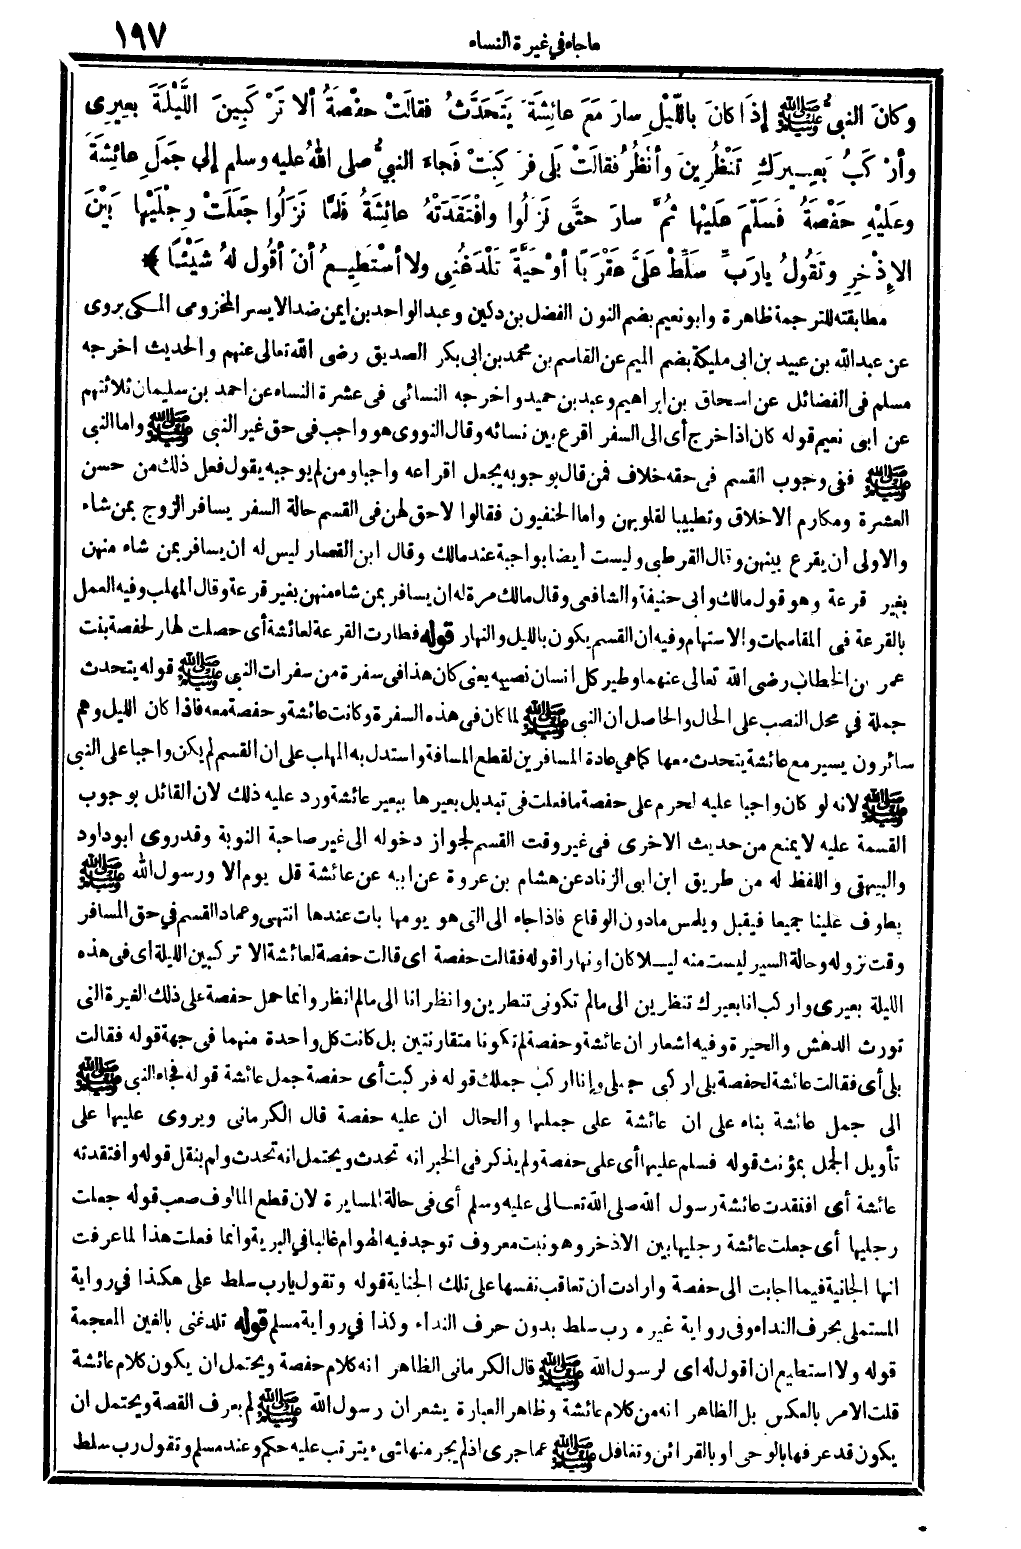 ماجاء في غيرة النساء ١٩٧
وكانَ النبيُّ ﷺ إذَا كانَ باللَّيْلِ سارَ مَعَ عائِشَةَ يَتَحَدَّثُ فقالَتْ حفْصَةُ ألا تَرْكَبِينَ اللَّيْلَةَ بعِيرِى
وأرْكَبُ بَعِيرَكِ تَنْظُرِينَ وأنْظُرُ فقالَتْ بَلَى فرَكِبَتْ فَجاءَ النبيُّ صلى اللهُ عليه وسلم إلى جَمَلِ عائِشَةَ
وعَلَيْهِ حَفْصَةُ فَسَلَّمَ عَلَيْها ثُمَّ سارَ حتَّى نَزَلُوا وافْتَقَدَتْهُ عائِشَةُ فَلمَّا نَزَلُوا جَعَلَتْ رِجْلَيْها بَيْنَ
الإِذْخِرِ وتَقُولُ يارَبِّ سَلِّطْ عَلَيَّ عَقْرَبًا أوْ حَيَّةً تَلْدَغُنِى ولا أسْتَطِيعُ أنْ أقُولَ لهُ شَيْئًا ﴾
مطابقته للترجمة ظاهرة وابو نعيم بضم النون الفضل بن دكين وعبد الواحد بن ايمن ضد الايسر المخزومى المكى يروى
عن عبدالله بن عبيد بن ابى مليكة بضم الميم عن القاسم بن محمد بن ابى بكر الصديق رضى الله تعالى عنهم والحديث اخرجه
مسلم فى الفضائل عن اسحاق بن ابراهيم وعبد بن حميد واخرجه النسائى فى عشرة النساء عن احمد بن سليمان ثلاثتهم
عن ابى نعيم قوله كان اذا خرج أى الى السفر اقرع بين نسائه وقال النووى هو واجب فى حق غير النبى ﷺ واما النبى
ﷺ ففى وجوب القسم فى حقه خلاف فمن قال بوجوبه يجعل اقراعه واجبا ومن لم يوجبه يقول فعل ذلك من حسن
العشرة ومكارم الاخلاق وتطييبا لقلوبهن واما الحنفيون فقالوا لاحق لهن فى القسم حالة السفر يسافر الزوج بمن شاء
والاولى أن يقرع بينهن وقال القرطبى وليست أيضا بواجبة عند مالك وقال ابن القصار ليس له ان يسافر بمن شاء منهن
بغير قرعة وهو قول مالك وابى حنيفة والشافعى وقال مالك مرة له ان يسافر بمن شاء منهن بغير قرعة وقال المهلب وفيه العمل
بالقرعة فى المقاسمات والاستهام وفيه ان القسم يكون بالليل والنهار قوله فطارت القرعة لعائشة أى حصلت لها ر لحفصة بنت
عمر بن الخطاب رضى الله تعالى عنهما وطير كل انسان نصيبه يعنى كان هذا فى سفرة من سفرات النبى ﷺ قوله يتحدث
جملة في محل النصب على الحال والحاصل ان النبى ﷺ لما كان فى هذه السفرة وكانت عائشة وحفصة معه فاذا كان الليل وهم
سائرون يسير مع عائشة يتحدث معها كما هي عادة المسافرين لقطع المسافة واستدل به المهلب على ان القسم لم يكن واجبا على النبى
ﷺ لانه لو كان واجبا عليه لحرم على حفصة ما فعلت فى تبديل بعيرها ببعير عائشة ورد عليه ذلك لان القائل بوجوب
القسمة عليه لا يمنع من حديث الاخرى فى غير وقت القسم لجواز دخوله الى غير صاحبة النوبة وقد روى ابو داود
والبيهقى واللفظ له من طريق ابن ابى الزناد عن هشام بن عروة عن ابيه عن عائشة قل يوم الا ورسول الله ﷺ
يطوف علينا جميعا فيقبل ويلمس مادون الوقاع فاذا جاء الى التى هو يومها بات عندها انتهى وعماد القسم في حق المسافر
وقت نزوله وحالة السير ليست منه ليلا كان او نهارا قوله فقالت حفصة اى قالت حفصة لعائشة الا تركبين الليلة اى فى هذه
الليلة بعيرى واركب انا بعيرك تنظرين الى مالم تكونى تنظرين وانظر انا الى مالم انظر وانما حمل حفصة على ذلك الغيرة التى
تورث الدهش والحيرة وفيه اشعار ان عائشة وحفصة لم تكونا متقارنتين بل كانت كل واحدة منهما فى جهة قوله فقالت
بلى أى فقالت عائشة لحفصة بلى اركبى جملى وإنا اركب جملك قوله فركبت أى حفصة جمل عائشة قوله فجاء النبى ﷺ
الى جمل عائشة بناء على ان عائشة على جملها والحال ان عليه حفصة قال الكرمانى ويروى عليها على
تأويل الجمل بمؤنث قوله فسلم عليها أى على حفصة ولم يذكر فى الخبر انه تحدث ويحتمل انه تحدث ولم ينقل قوله وافتقدته
عائشة أى افتقدت عائشة رسول الله صلى الله تعالى عليه وسلم أى فى حالة المسايرة لان قطع المالوف صعب قوله جعلت
رجليها أى جعلت عائشة رجليها بين الاذخر وهو نبت معروف توجد فيه الهوام غالبا في البرية وانما فعلت هذا لما عرفت
انها الجانية فيما اجابت الى حفصة وارادت أن تعاقب نفسها على تلك الجناية قوله وتقول يارب سلط على هكذا في رواية
المستملى بحرف النداء وفى رواية غيره رب سلط بدون حرف النداء وكذا في رواية مسلم قوله تلدغنى بالغين المعجمة
قوله ولا استطيع ان اقول له اى لرسول الله ﷺ قال الكرمانى الظاهر انه كلام حفصة ويحتمل ان يكون كلام عائشة
قلت الامر بالعكس بل الظاهر انه من كلام عائشة وظاهر العبارة يشعر ان رسول الله ﷺ لم يعرف القصة ويحتمل ان
يكون قد عرفها بالوحى او بالقرائن وتغافل ﷺ عما جرى اذ لم يجر منها شىء يترتب عليه حكم وعند مسلم وتقول رب سلط